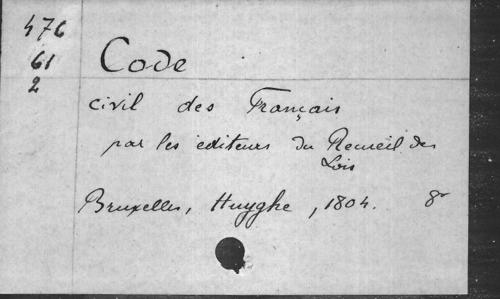 476
61
2
Code
civil des Français
par les éditeurs du Recueil des
Lois
Bruxelles, Huyghe, 1804. 8º